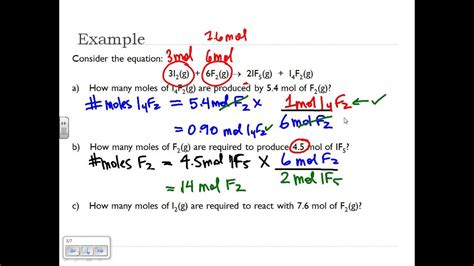 1.6 mol
Example
3mol 6mol
Consider the equation:
3I₂(g) + 6F₂(g) → 2IF₅(g) + I₄F₂(g)
a) How many moles of I₄F₂(g) are produced by 5.4 mol of F₂(g)?
#moles I₄F₂ = 5.4mol F₂ x 1mol I₄F₂ ← ✓
6mol F₂
= 0.90 mol I₄F₂ ✓
b) How many moles of F₂(g) are required to produce 4.5 mol of IF₅?
#moles F₂ = 4.5mol IF₅ x 6mol F₂
2mol IF₅
= 14 mol F₂
c) How many moles of I₂(g) are required to react with 7.6 mol of F₂(g)?